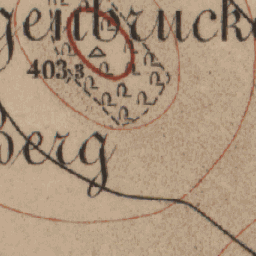 genbrücke
403,3
Berg